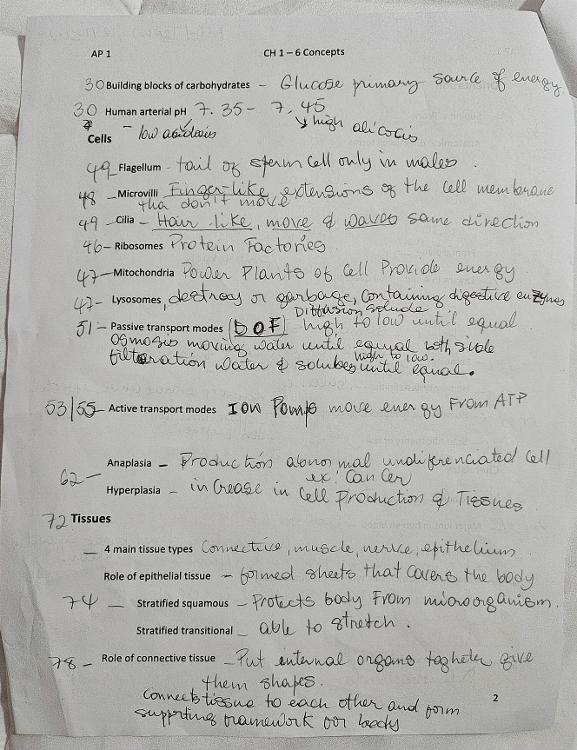 AP 1 CH 1 – 6 Concepts
30 Building blocks of carbohydrates – Glucose primary source of energy
30 Human arterial pH 7.35 – 7.45
– low acidosis ↘ high alicocis
Cells
49 Flagellum - tail of sperm cell only in males .
48 – Microvilli Finger-like extensions of the cell membrane
tha don't move
49 – Cilia – Hair like, move & waves same direction
46 – Ribosomes Protein Factories
47 – Mitochondria Power Plants of Cell Provide energy
47 – Lysosomes, destroy or garbage, containing digestive enzymes
Diffusion solude
51 – Passive transport modes (DOF) high to low until equal
Osmosis moving water until equal both side
high to low.
filteration water & solubes until equal.
53/55 – Active transport modes Ion Pomps move energy From ATP
Anaplasia – Production abnormal undiferenciated cell
62 – ex: Cancer
Hyperplasia – increase in Cell Production & Tissues
72 Tissues
– 4 main tissue types Connective, muscle, nerve, epithelium
Role of epithelial tissue – formed sheets that covers the body
74 – Stratified squamous – Protects body From microorganism.
Stratified transitional – able to stretch .
78 – Role of connective tissue – Put internal organs togheter give
them shapes.
Connects tissue to each other and form
supporting framework for body
2